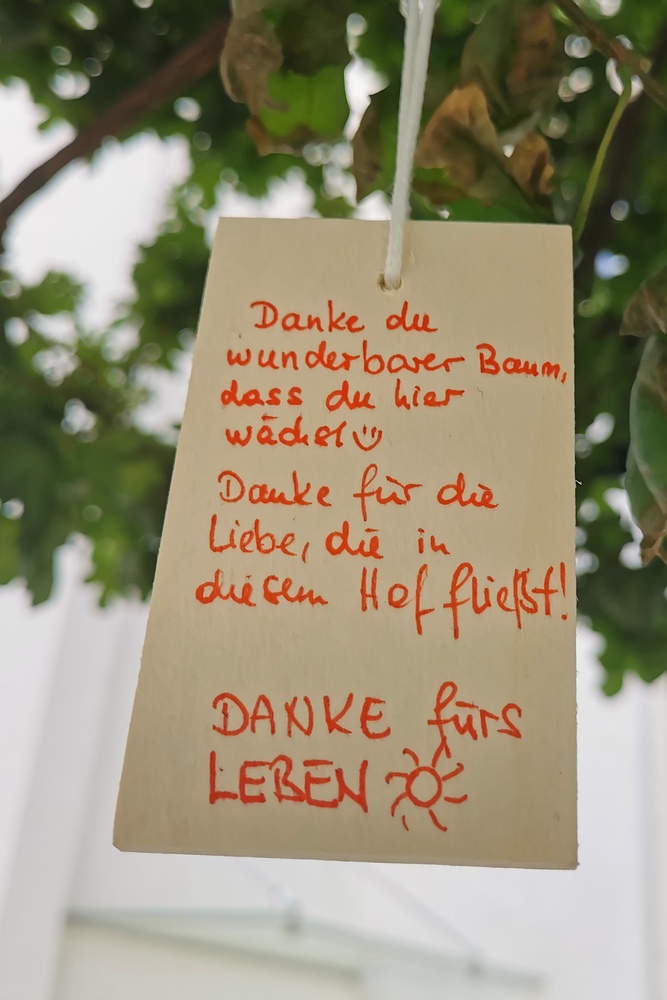 Danke du
wunderbarer Baum,
dass du hier
wächst
Danke für die
Liebe, die in
diesem Hof fließt!
DANKE fürs
LEBEN